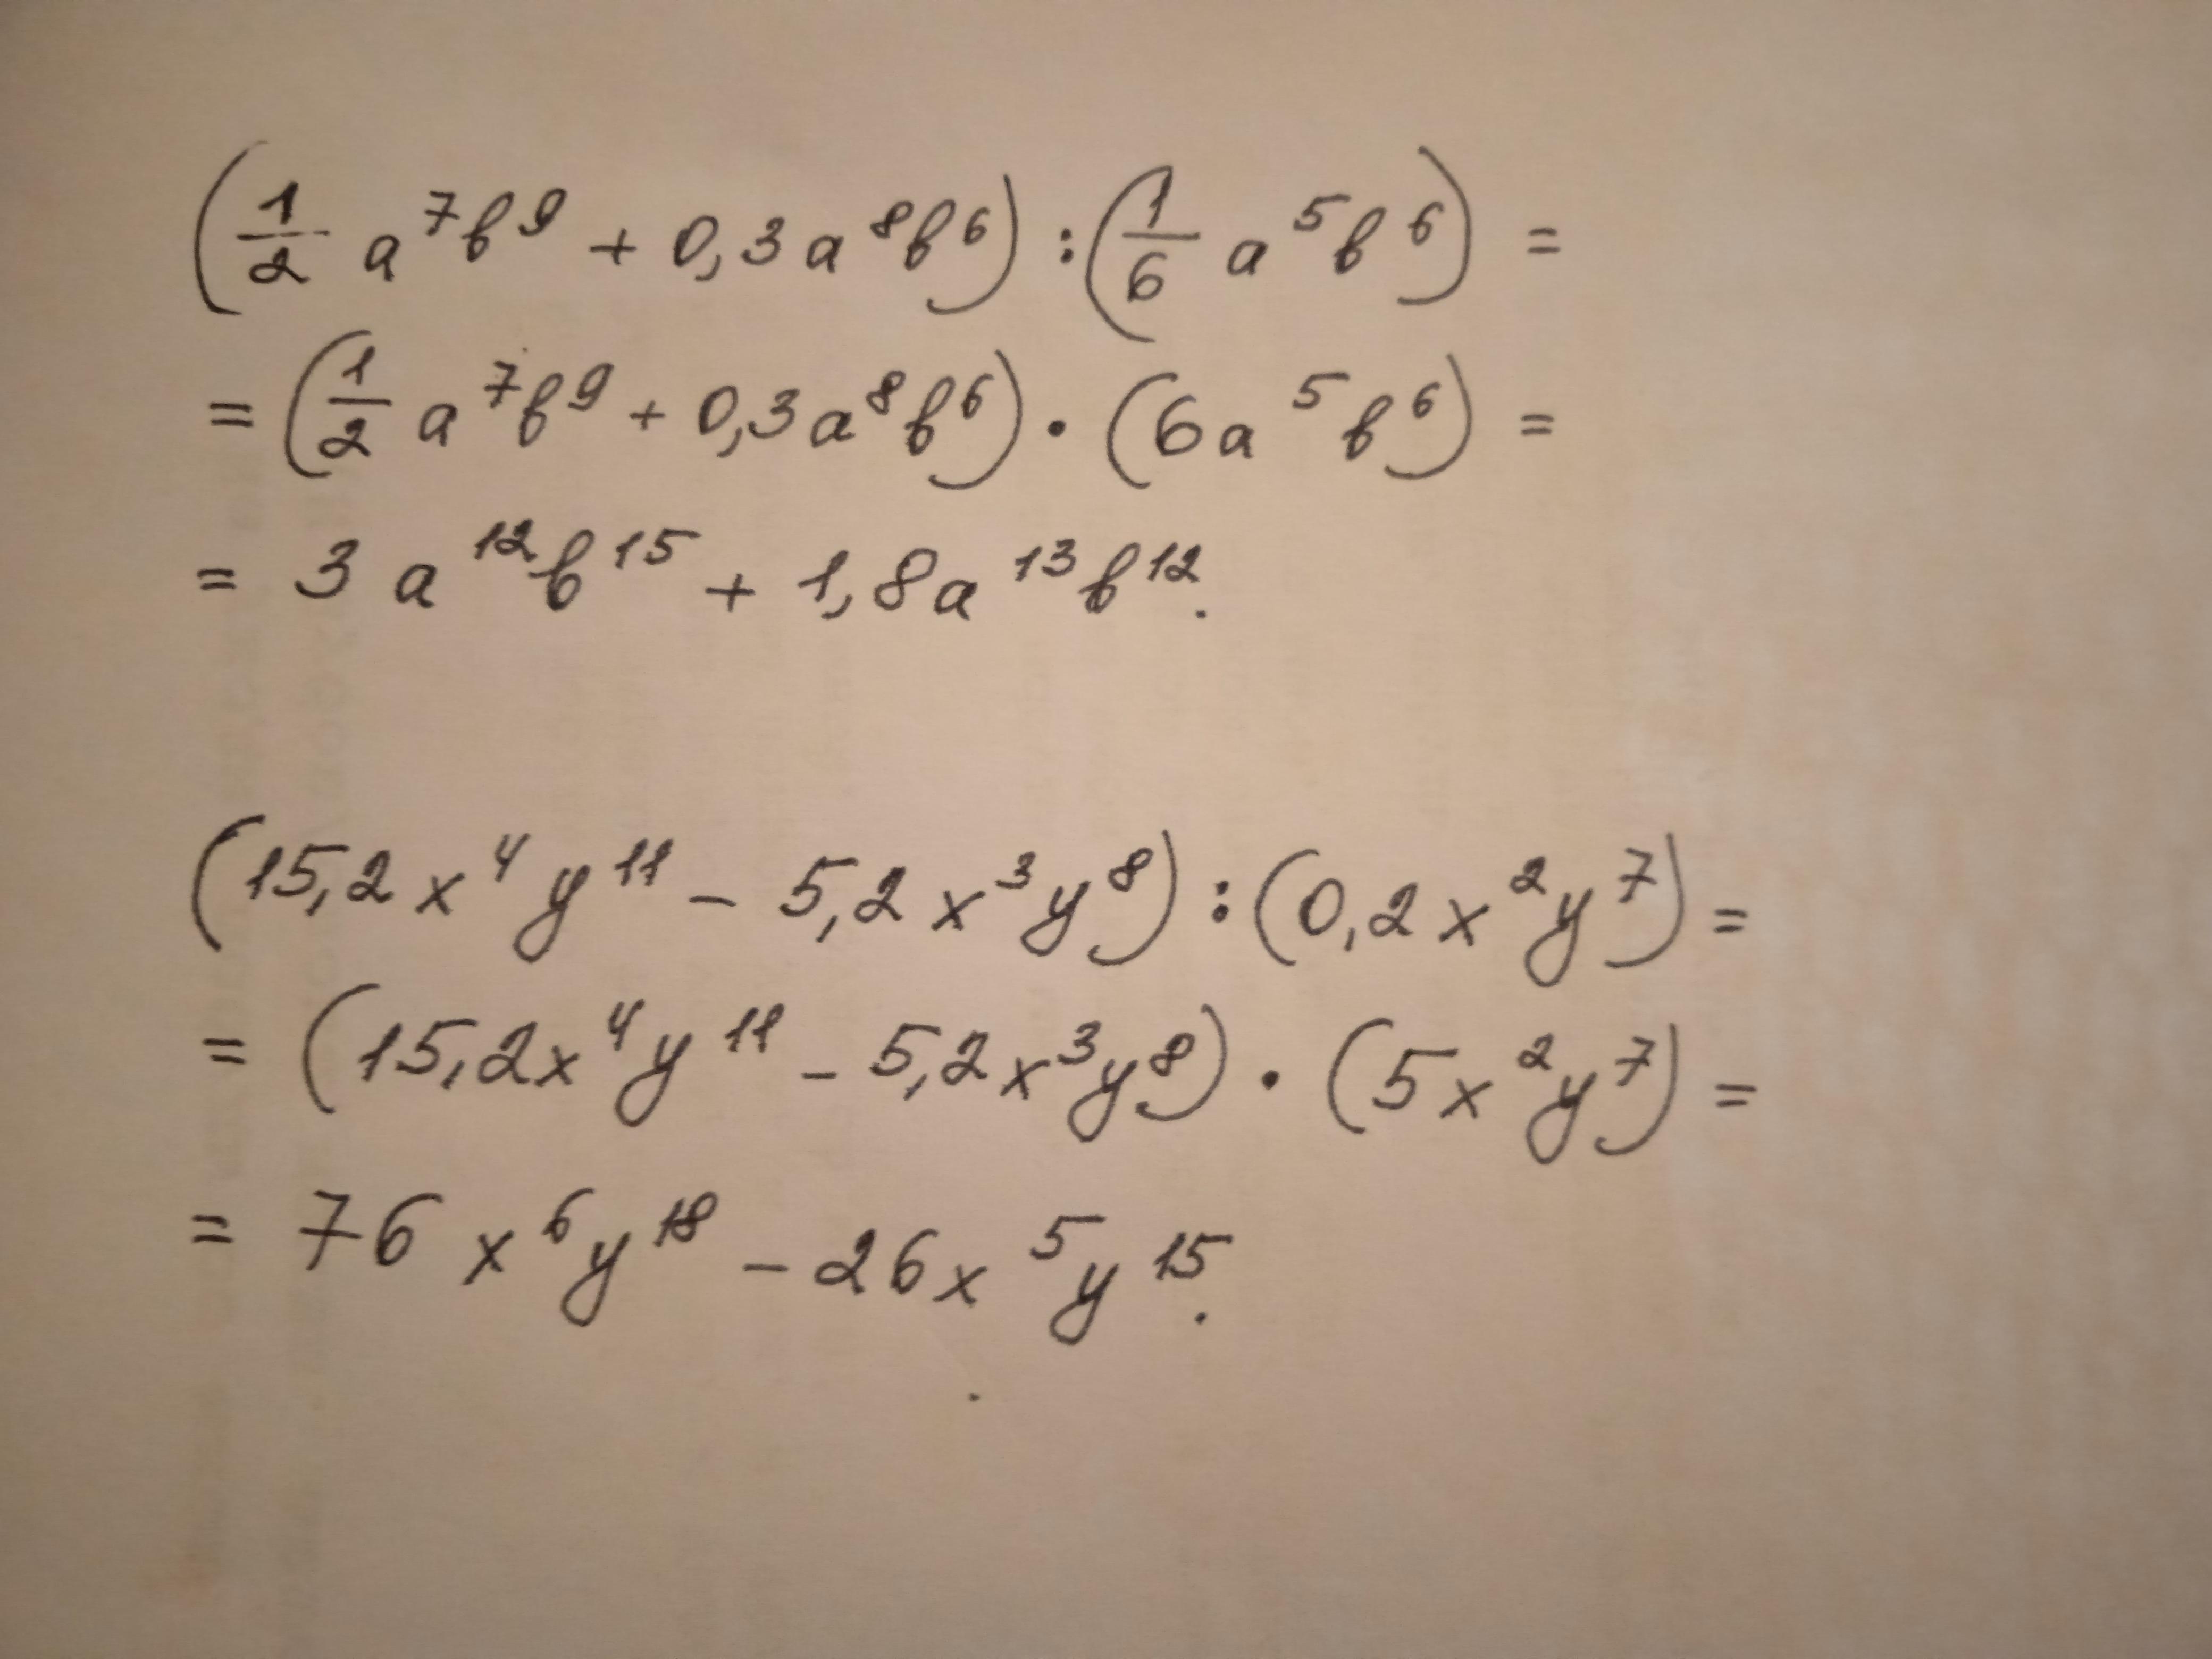 (1/2 a⁷b⁹ + 0,3a⁸b⁶) : (1/6 a⁵b⁶) =
= (1/2 a⁷b⁹ + 0,3a⁸b⁶) · (6a⁵b⁶) =
= 3a¹²b¹⁵ + 1,8a¹³b¹².
(15,2x⁴y¹¹ - 5,2x³y⁸) : (0,2x²y⁷) =
= (15,2x⁴y¹¹ - 5,2x³y⁸) · (5x²y⁷) =
= 76x⁶y¹⁸ - 26x⁵y¹⁵.